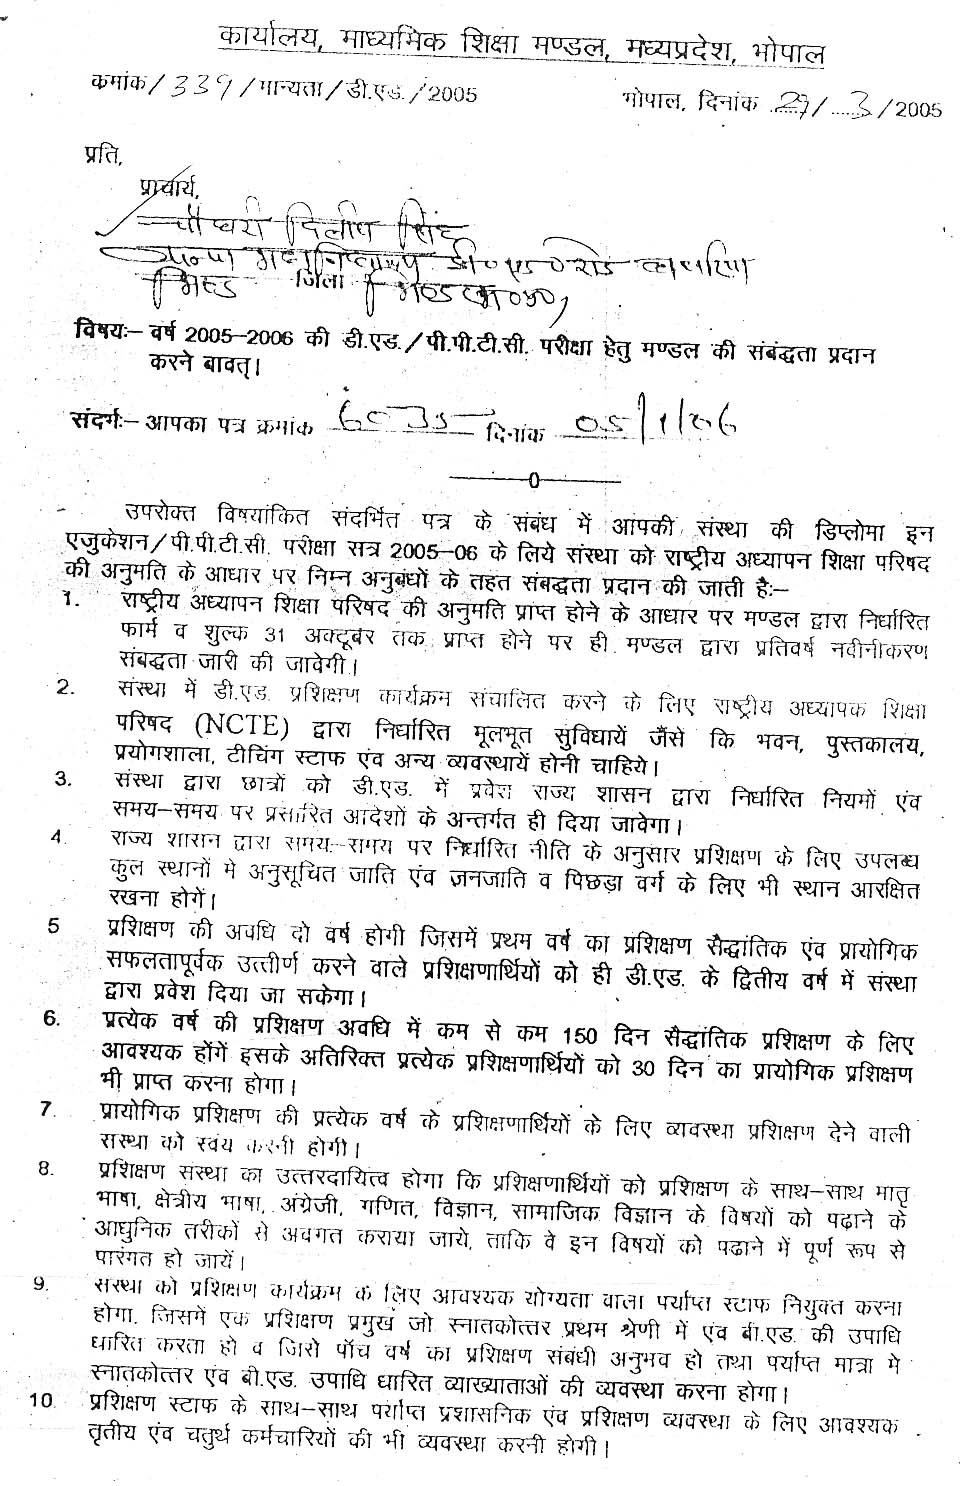 कार्यालय, माध्यमिक शिक्षा मण्डल, मध्यप्रदेश, भोपाल
कमांक/339/मान्यता/डी.एड./2005
भोपाल, दिनांक 29/3/2005
प्रति,
प्राचार्य,
चौधरी दिलीप सिंह
कन्या महाविद्यालय डी०एड०रोड
भिण्ड जिला भिण्ड
विषयः– वर्ष 2005–2006 की डी.एड./पी.पी.टी.सी. परीक्षा हेतु मण्डल की संबंद्धता प्रदान
करने बावत्।
संदर्गः– आपका पत्र क्रमांक दिनांक 05/1/06
0
उपरोक्त विषयांकित संदर्भित पत्र के संबंध में आपकी संस्था की डिप्लोमा इन
एजुकेशन/पी.पी.टी.सी. परीक्षा सत्र 2005–06 के लिये संस्था को राष्ट्रीय अध्यापन शिक्षा परिषद
की अनुमति के आधार पर निम्न अनुबंधों के तहत संबद्धता प्रदान की जाती हैः–
1. राष्ट्रीय अध्यापन शिक्षा परिषद की अनुमति प्राप्त होने के आधार पर मण्डल द्वारा निर्धारित
फार्म व शुल्क 31 अक्टूबर तक प्राप्त होने पर ही मण्डल द्वारा प्रतिवर्ष नवीनीकरण
संबद्धता जारी की जावेगी।
2. संस्था में डी.एड. प्रशिक्षण कार्यक्रम संचालित करने के लिए राष्ट्रीय अध्यापक शिक्षा
परिषद (NCTE) द्वारा निर्धारित मूलभूत सुविधायें जैसे कि भवन, पुस्तकालय,
प्रयोगशाला, टीचिंग स्टाफ एंव अन्य व्यवस्थायें होनी चाहिये।
3. संस्था द्वारा छात्रों को डी.एड. में प्रवेश राज्य शासन द्वारा निर्धारित नियमों एंव
समय–समय पर प्रसारित आदेशों के अन्तर्गत ही दिया जावेगा।
4. राज्य शासन द्वारा समय–समय पर निर्धारित नीति के अनुसार प्रशिक्षण के लिए उपलब्ध
कुल स्थानों मे अनुसूचित जाति एंव ज़नजाति व पिछड़ा वर्ग के लिए भी स्थान आरक्षित
रखना होगें।
5 प्रशिक्षण की अवधि दो वर्ष होगी जिसमें प्रथम वर्ष का प्रशिक्षण सैद्धांतिक एंव प्रायोगिक
सफलतापूर्वक उत्तीर्ण करने वाले प्रशिक्षणार्थियों को ही डी.एड. के द्वितीय वर्ष में संस्था
द्वारा प्रवेश दिया जा सकेगा।
6. प्रत्येक वर्ष की प्रशिक्षण अवधि में कम से कम 150 दिन सैद्धांतिक प्रशिक्षण के लिए
आवश्यक होंगें इसके अतिरिक्त प्रत्येक प्रशिक्षणार्थियों को 30 दिन का प्रायोगिक प्रशिक्षण
भी प्राप्त करना होगा।
7. प्रायोगिक प्रशिक्षण की प्रत्येक वर्ष के प्रशिक्षणार्थियों के लिए व्यवस्था प्रशिक्षण देने वाली
सस्था को स्वंय करनी होगी।
8. प्रशिक्षण संस्था का उत्तरदायित्व होगा कि प्रशिक्षणार्थियों को प्रशिक्षण के साथ–साथ मातृ
भाषा, क्षेत्रीय भाषा, अंग्रेजी, गणित, विज्ञान, सामाजिक विज्ञान के विषयों को पढ़ाने के
आधुनिक तरीकों से अवगत कराया जाये, ताकि वे इन विषयों को पढाने में पूर्ण रूप से
पारंगत हो जायें।
9. संस्था को प्रशिक्षण कार्यक्रम के लिए आवश्यक योग्यता वाला पर्याप्त स्टाफ नियुक्त करना
होगा, जिसमें एक प्रशिक्षण प्रमुख जो स्नातकोत्तर प्रथम श्रेणी में एंव बी.एड. की उपाधि
धारित करता हो व जिसे पॉच वर्ष का प्रशिक्षण संबंधी अनुभव हो तथा पर्याप्त मात्रा मे
स्नातकोत्तर एंव बी.एड. उपाधि धारित व्याख्याताओं की व्यवस्था करना होगा।
10. प्रशिक्षण स्टाफ के साथ–साथ पर्याप्त प्रशासनिक एंव प्रशिक्षण व्यवस्था के लिए आवश्यक
तृतीय एंव चतुर्थ कर्मचारियों की भी व्यवस्था करनी होगी।